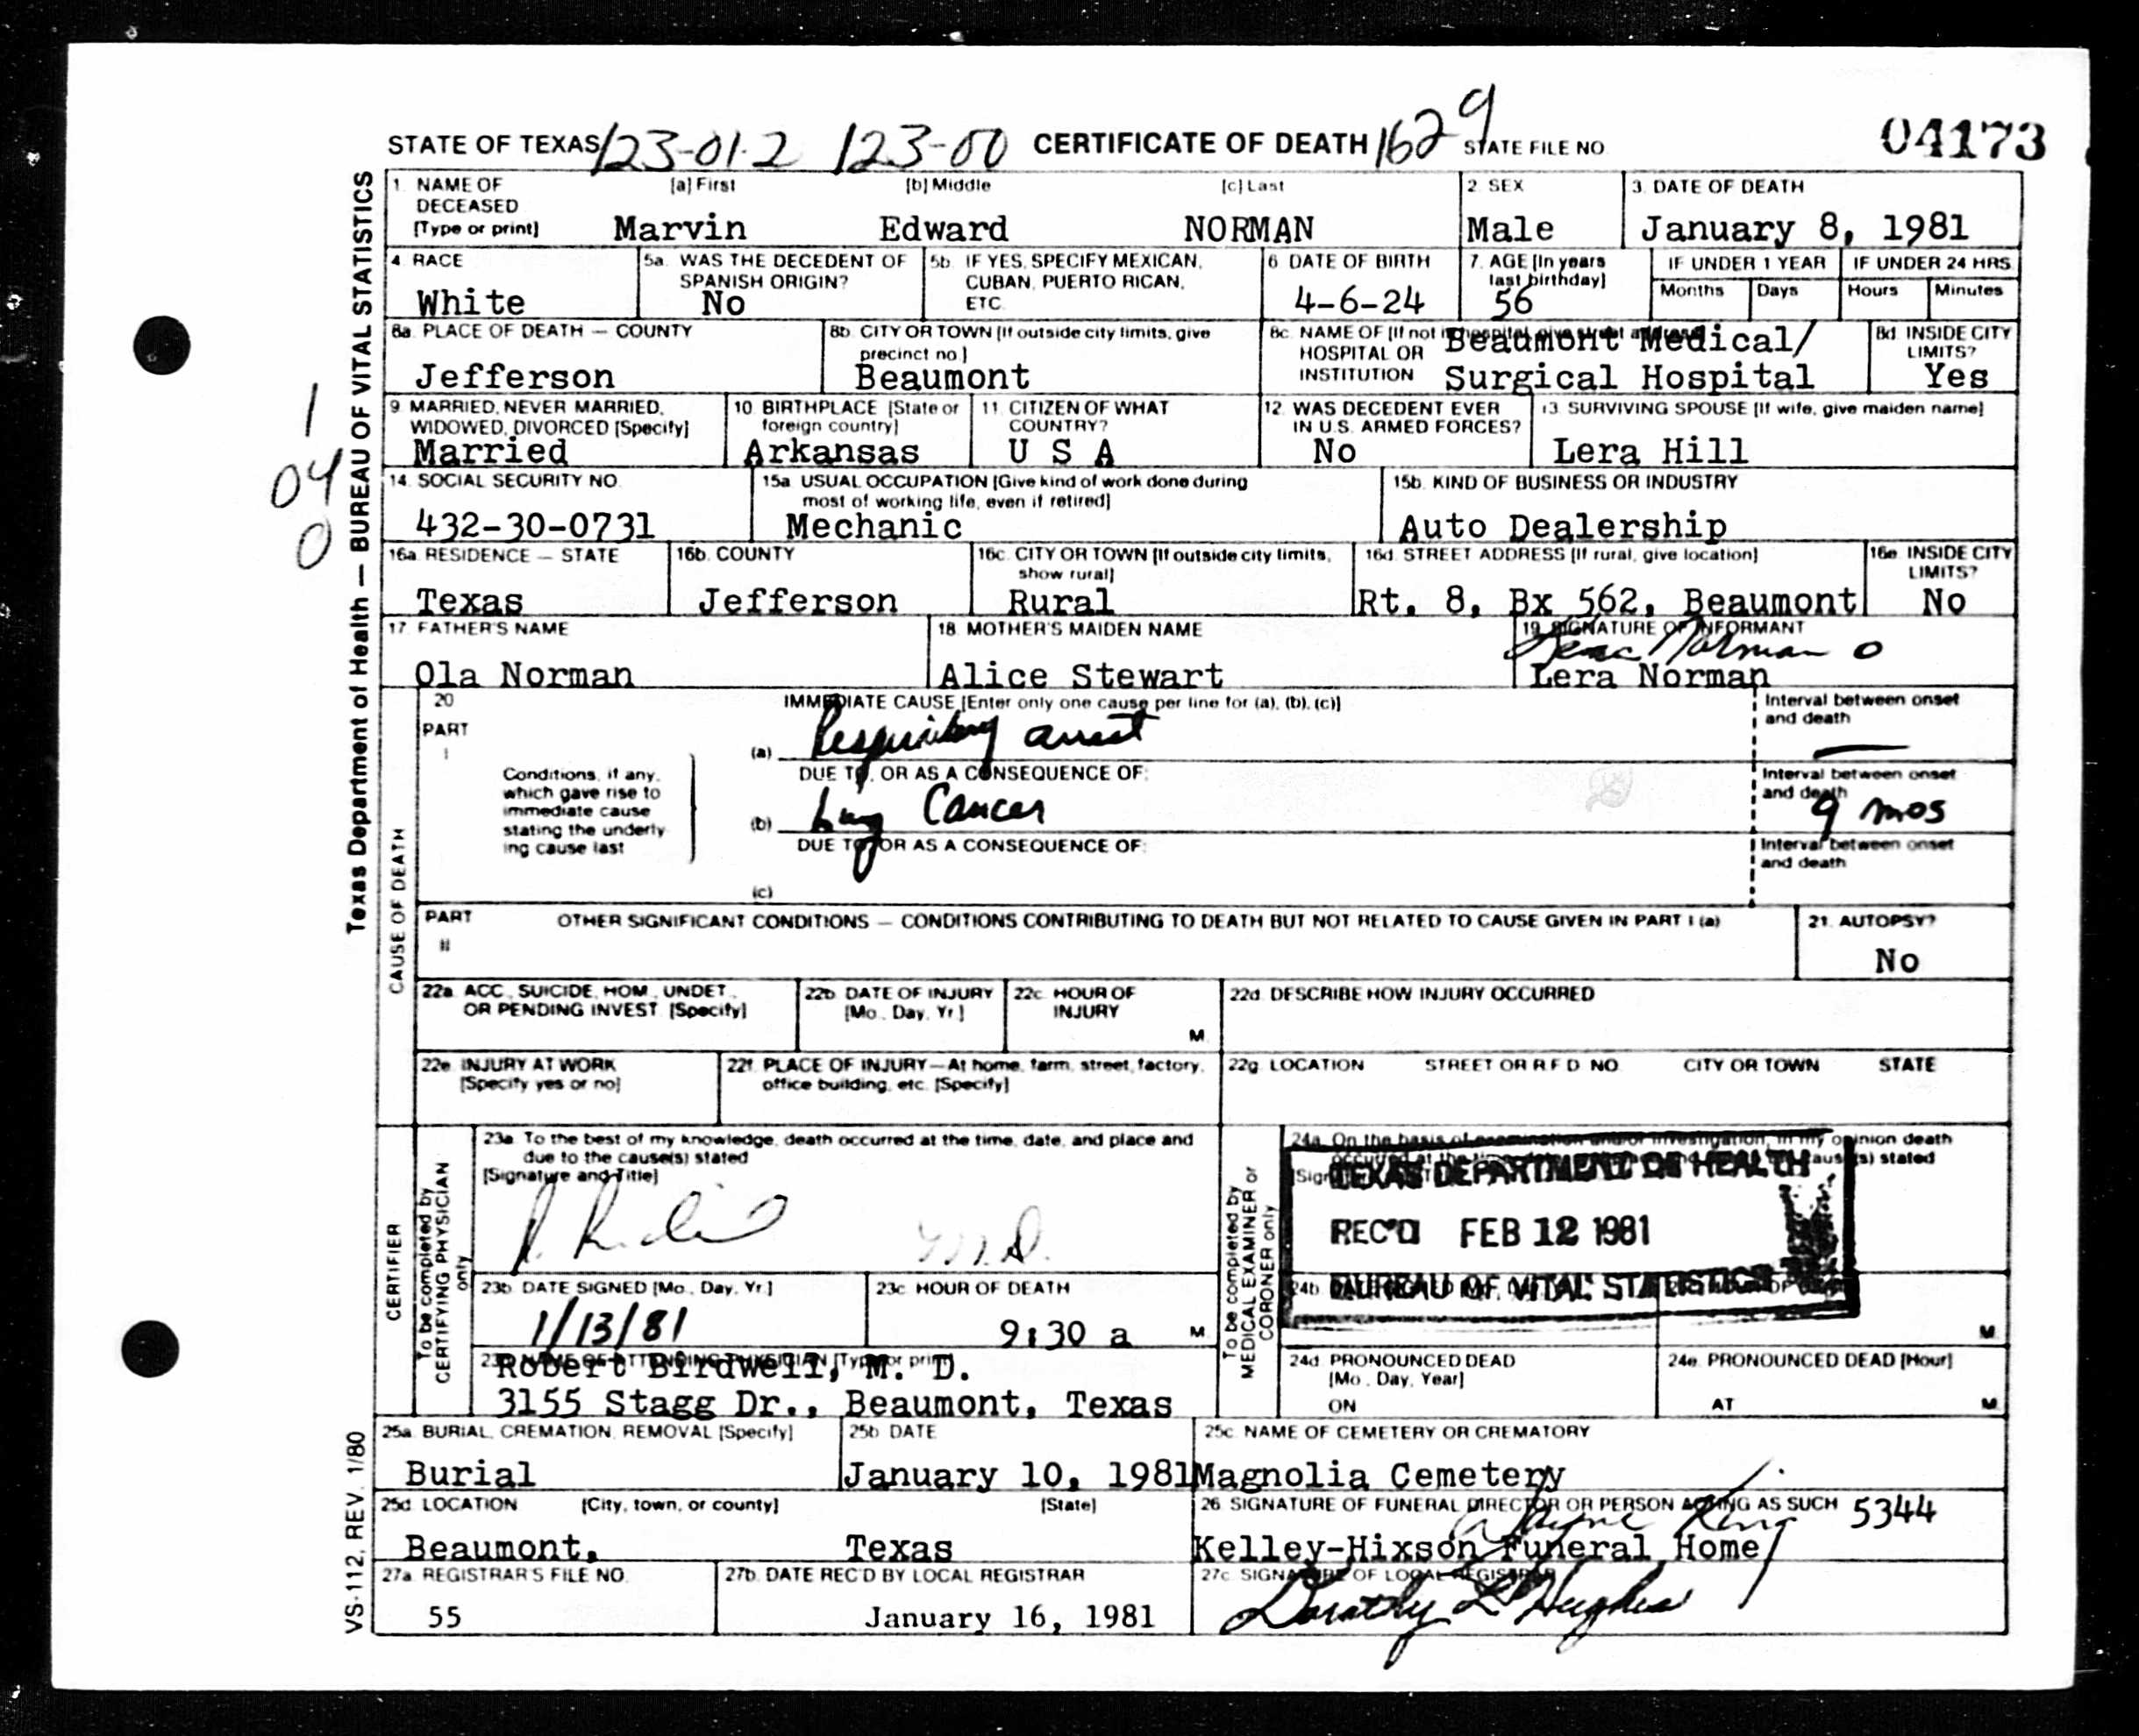 STATE OF TEXAS 123-01-2 123-00 CERTIFICATE OF DEATH 1629 STATE FILE NO 04173
Texas Department of Health — BUREAU OF VITAL STATISTICS
VS-112, REV. 1/80
1
04
0
1. NAME OF DECEASED [Type or print] [a] First [b] Middle [c] Last
Marvin Edward NORMAN
2 SEX
Male
3. DATE OF DEATH
January 8, 1981
4 RACE
White
5a. WAS THE DECEDENT OF SPANISH ORIGIN?
No
5b. IF YES, SPECIFY MEXICAN, CUBAN, PUERTO RICAN, ETC
6 DATE OF BIRTH
4-6-24
7. AGE [In years last birthday]
56
IF UNDER 1 YEAR
Months Days
IF UNDER 24 HRS
Hours Minutes
8a. PLACE OF DEATH — COUNTY
Jefferson
8b. CITY OR TOWN [If outside city limits, give precinct no.]
Beaumont
8c. NAME OF [If not in hospital, give street address] HOSPITAL OR INSTITUTION
Beaumont Medical/
Surgical Hospital
8d. INSIDE CITY LIMITS?
Yes
9. MARRIED, NEVER MARRIED, WIDOWED, DIVORCED [Specify]
Married
10. BIRTHPLACE [State or foreign country]
Arkansas
11. CITIZEN OF WHAT COUNTRY?
U S A
12. WAS DECEDENT EVER IN U.S. ARMED FORCES?
No
13. SURVIVING SPOUSE [If wife, give maiden name]
Lera Hill
14. SOCIAL SECURITY NO.
432-30-0731
15a. USUAL OCCUPATION [Give kind of work done during most of working life, even if retired]
Mechanic
15b. KIND OF BUSINESS OR INDUSTRY
Auto Dealership
16a. RESIDENCE — STATE
Texas
16b. COUNTY
Jefferson
16c. CITY OR TOWN [If outside city limits, show rural]
Rural
16d. STREET ADDRESS [If rural, give location]
Rt. 8, Bx 562, Beaumont
16e. INSIDE CITY LIMITS?
No
17. FATHER'S NAME
Ola Norman
18. MOTHER'S MAIDEN NAME
Alice Stewart
19. SIGNATURE OF INFORMANT
Lera Norman
Lera Norman
CAUSE OF DEATH
20
PART I
IMMEDIATE CAUSE [Enter only one cause per line for (a), (b), (c)]
(a) Respiratory arrest
Interval between onset and death
—
Conditions, if any, which gave rise to immediate cause stating the underlying cause last
DUE TO, OR AS A CONSEQUENCE OF:
(b) Lung Cancer
Interval between onset and death
9 mos
DUE TO, OR AS A CONSEQUENCE OF:
(c)
Interval between onset and death
PART II
OTHER SIGNIFICANT CONDITIONS — CONDITIONS CONTRIBUTING TO DEATH BUT NOT RELATED TO CAUSE GIVEN IN PART I (a)
21. AUTOPSY?
No
22a. ACC., SUICIDE, HOM., UNDET., OR PENDING INVEST. [Specify]
22b. DATE OF INJURY [Mo., Day, Yr.]
22c. HOUR OF INJURY
M.
22d. DESCRIBE HOW INJURY OCCURRED
22e. INJURY AT WORK [Specify yes or no]
22f. PLACE OF INJURY — At home, farm, street, factory, office building, etc. [Specify]
22g. LOCATION STREET OR R F D NO CITY OR TOWN STATE
CERTIFIER
To be completed by CERTIFYING PHYSICIAN only
23a. To the best of my knowledge, death occurred at the time, date, and place and due to the cause(s) stated
[Signature and Title]
M.D.
23b. DATE SIGNED [Mo., Day, Yr.]
1/13/81
23c. HOUR OF DEATH
9:30 a M.
NAME OF ATTENDING PHYSICIAN [Type or print]
Robert Birdwell, M. D.
3155 Stagg Dr., Beaumont, Texas
To be completed by MEDICAL EXAMINER or CORONER only
24a. On the basis of examination and/or investigation, in my opinion death
TEXAS DEPARTMENT OF HEALTH
REC'D FEB 12 1981
BUREAU OF VITAL STATISTICS
24b.
M.
24d. PRONOUNCED DEAD [Mo., Day, Year]
ON
24e. PRONOUNCED DEAD [Hour]
AT M.
25a. BURIAL, CREMATION, REMOVAL [Specify]
Burial
25b. DATE
January 10, 1981
25c. NAME OF CEMETERY OR CREMATORY
Magnolia Cemetery
25d. LOCATION [City, town, or county] [State]
Beaumont, Texas
26. SIGNATURE OF FUNERAL DIRECTOR OR PERSON ACTING AS SUCH
Wayne King 5344
Kelley-Hixson Funeral Home
27a. REGISTRAR'S FILE NO.
55
27b. DATE REC'D BY LOCAL REGISTRAR
January 16, 1981
27c. SIGNATURE OF LOCAL REGISTRAR
Dorothy L. Hughes